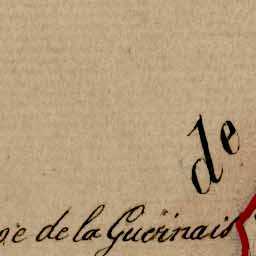 de
de la Guerinais